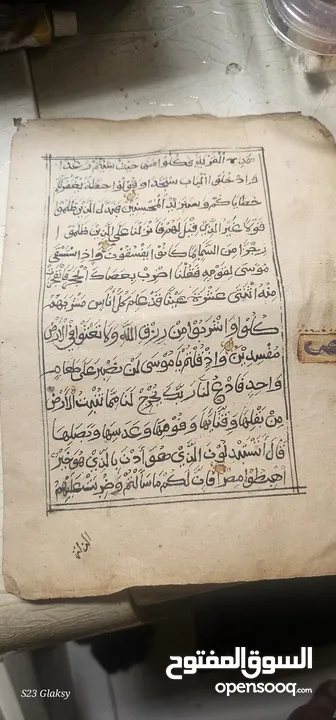 هذه القرية فكلوا منها حيث شئتم رغدا
وادخلوا الباب سجدا و قولوا حطة نغفر لكم
خطاياكم وسنزيد المحسنين فبدل الذين ظلموا
قولا غير الذي قيل لهم فانزلنا على الذين ظلموا
رجزا من السماء بما كانوا يفسقون واذ استسقى
موسى لقومه فقلنا اضرب بعصاك الحجر فانفجرت
منه اثنتى عشرة عينا قد علم كل أناس مشربهم
كلوا واشربوا من رزق الله ولا تعثوا في الأرض
مفسدين واذ قلتم يا موسى لن نصبر على طعام
واحد فادع لنا ربك يخرج لنا مما تنبت الأرض
من بقلها وقثائها وفومها وعدسها وبصلها
قال أتستبدلون الذي هو أدنى بالذي هو خير
اهبطوا مصرا فان لكم ما سألتم وضربت عليهم
S23 Glaksy
السوق المفتوح
opensooq.com